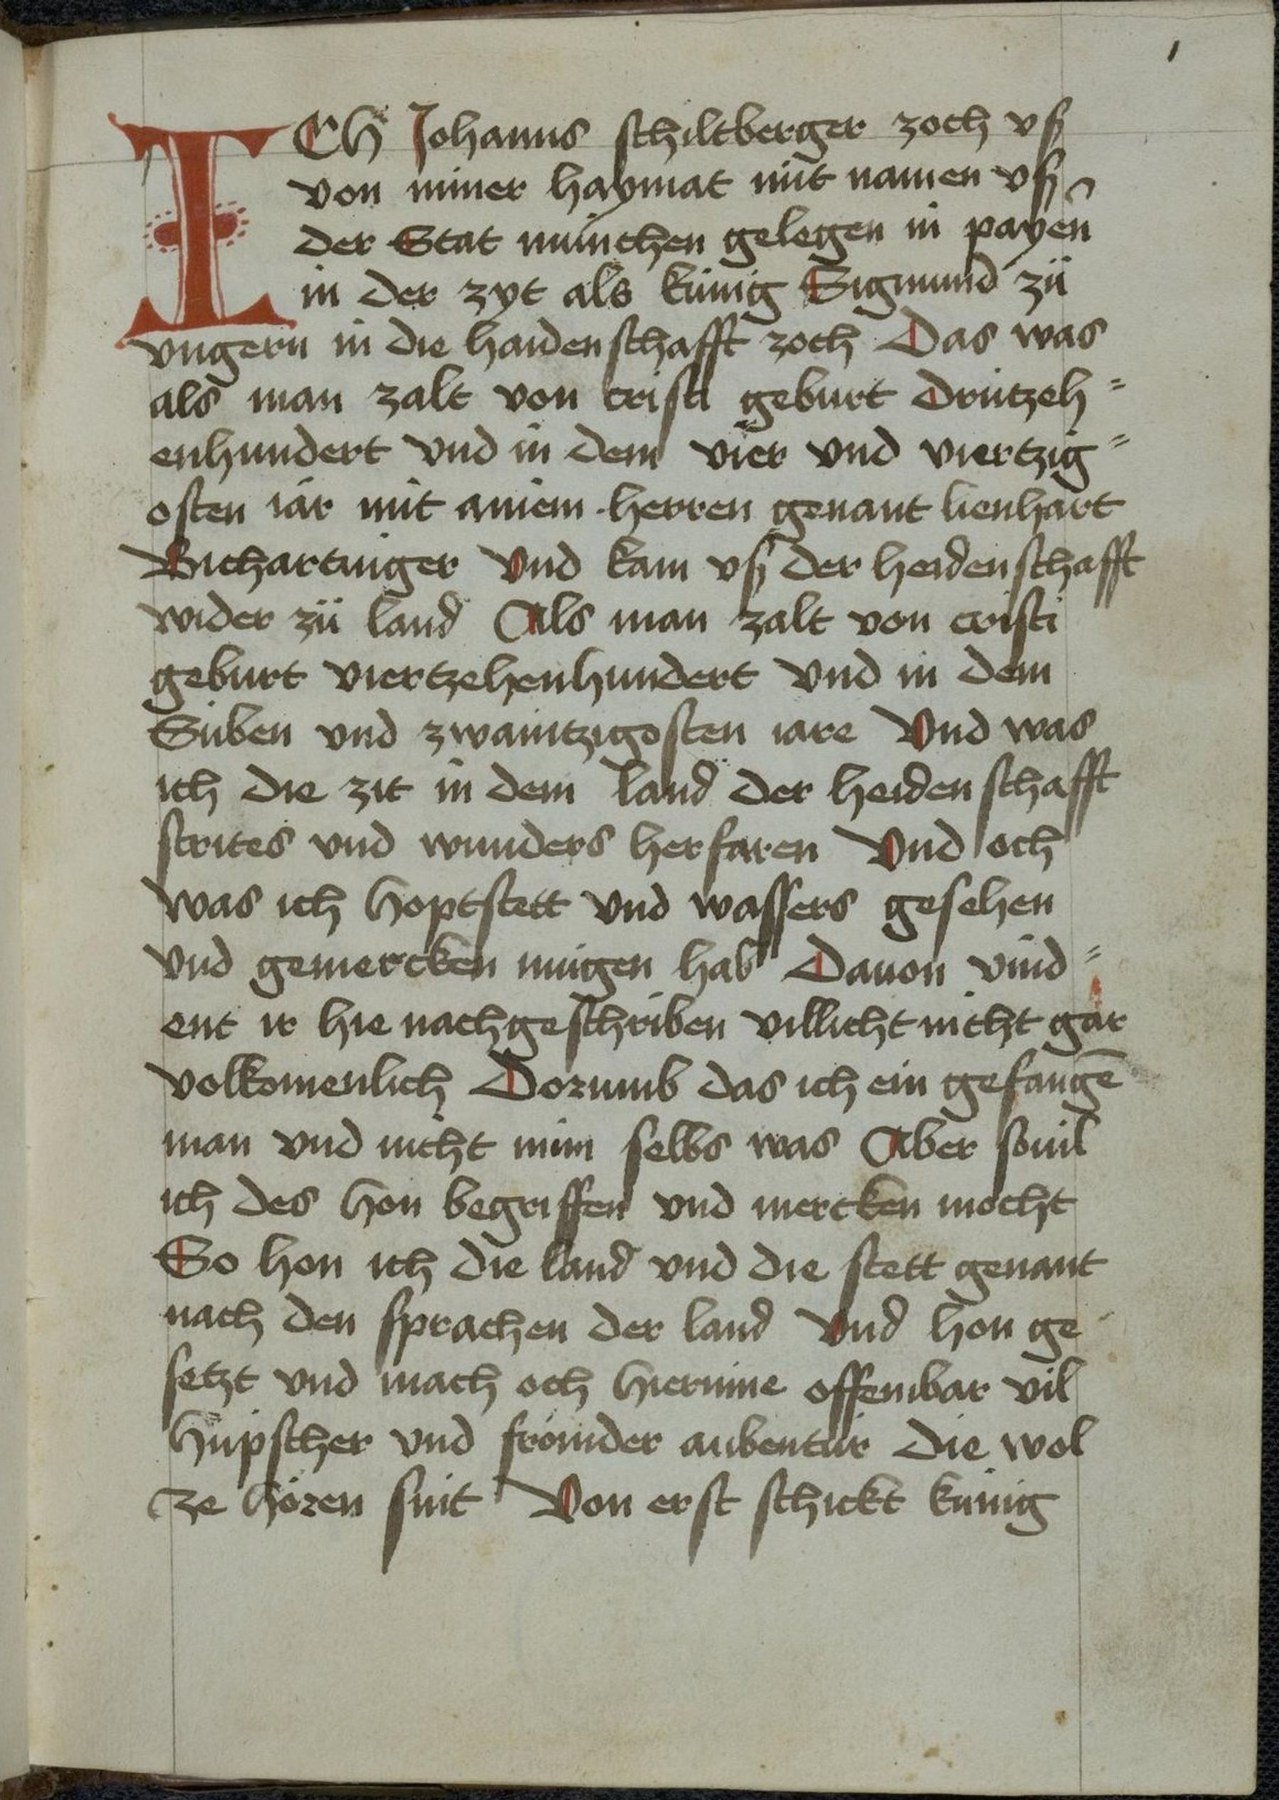 1
ICH Johanns schiltberger zoch vß
von miner haymat mit namen vß
der Stat münchen gelegen in payern̄
in der zyt als künig Sigmund zü
vngern in die haidenschafft zoch Das was
als man zalt von cristi geburt drützeh=
enhundert vnd in dem vier vnd viertzig=
osten iar mit ainem herren genant lienhart
Richartinger Vnd kam vß der heidenschafft
wider zü land Als man zalt von cristi
geburt viertzehenhundert vnd in dem
Siben vnd zwaintzigosten iare Vnd was
ich die zit in dem land der heidenschafft
strites vnd wunders herfaren Vnd och
was ich hoptstett vnd wassers gesehen
vnd gemercken mügen hab Dauon vind=
ent ir hie nachgeschriben villicht nicht gar
volkomenlich Dorumb das ich ein gefangē
man vnd nicht min selbs was Aber souil
ich des hon begriffen vnd mercken mocht
So hon ich die land vnd die stett genant
nach den sprachen der land Vnd hon ge
setzt vnd mach och hierinne offembar vil
hüpscher vnd frömder aubentür die wol
ze hören sint Von erst schickt künig